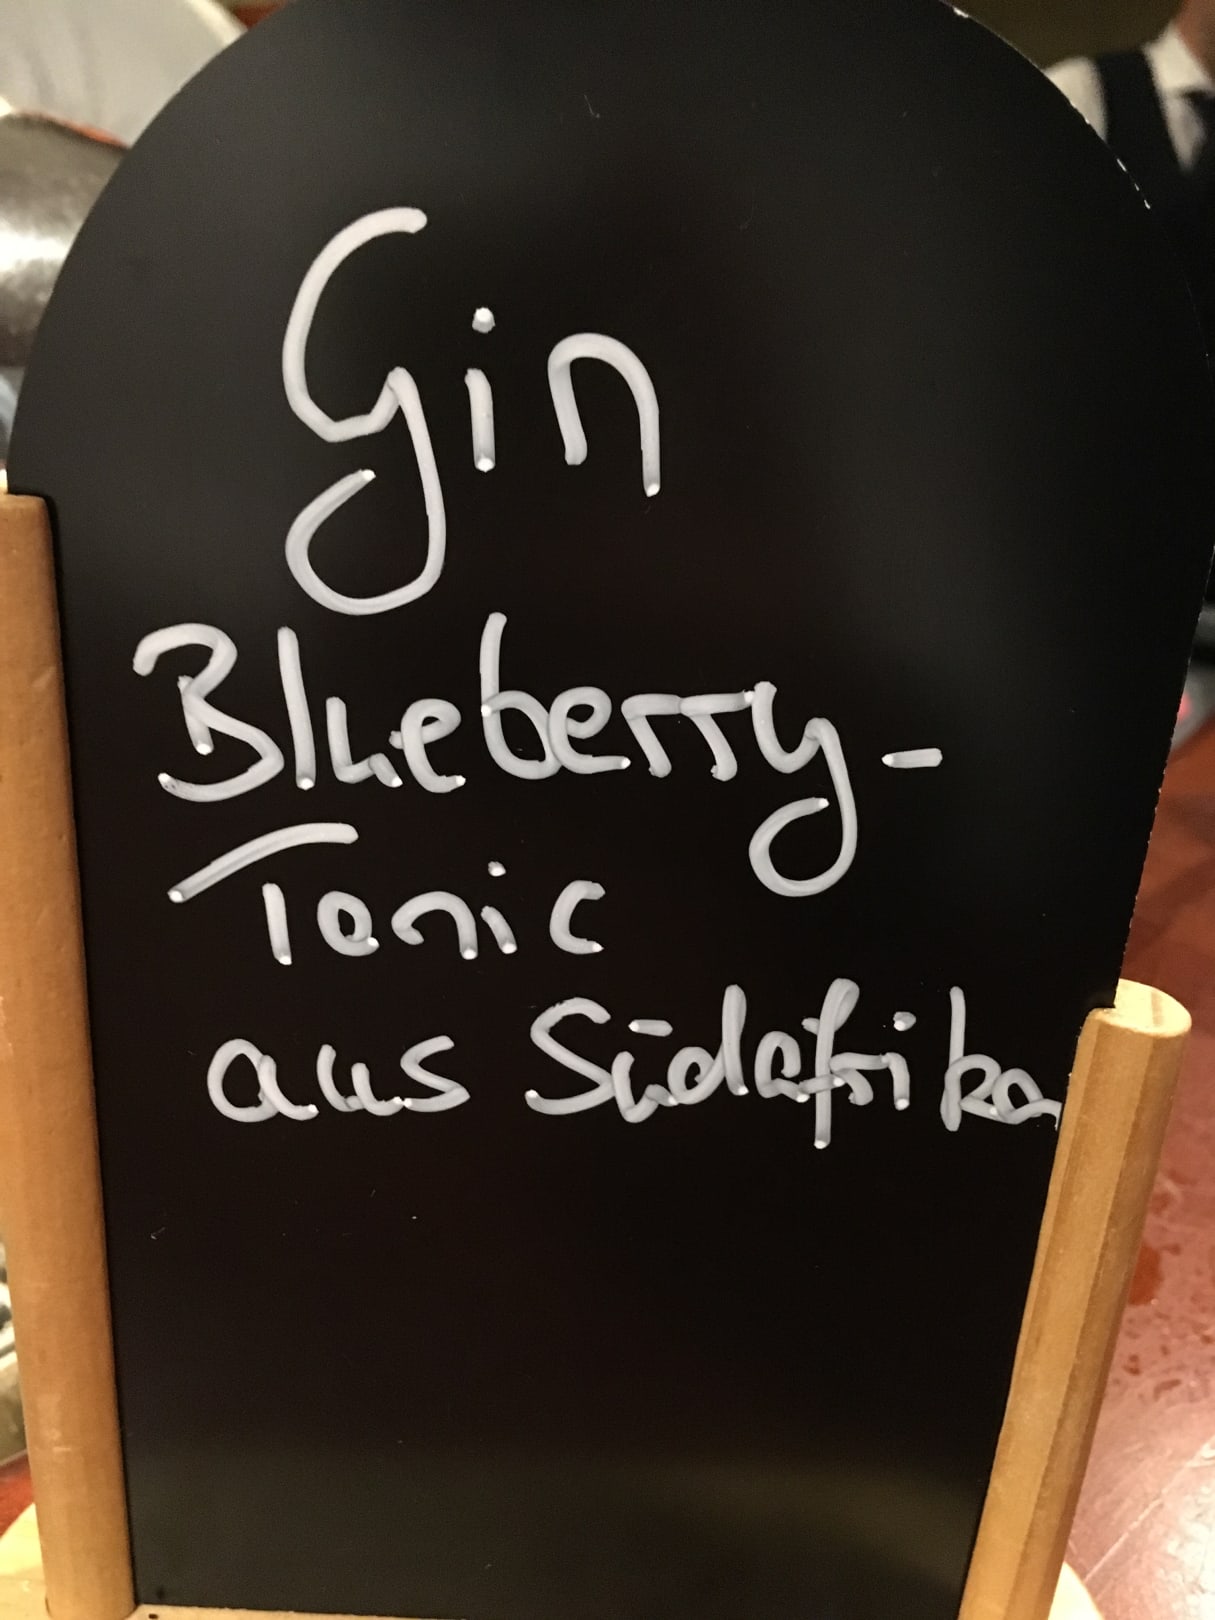 Gin
Blueberry-
Tonic
aus Südafrika